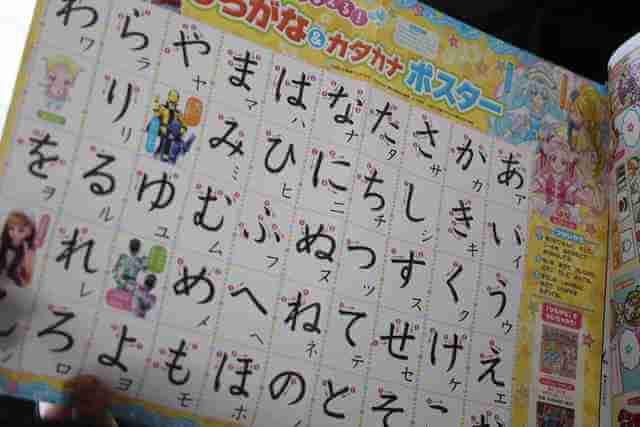 ひらがな&カタカナ ポスター
あ ア い イ う ウ え エ
か カ き キ く ク け ケ
さ サ し シ す ス せ セ そ
た タ ち チ つ ツ て テ と
な ナ に ニ ぬ ヌ ね ネ の
は ハ ひ ヒ ふ フ へ ヘ ほ ホ
ま マ み ミ む ム め メ も モ
や ヤ ゆ ユ よ ヨ
ら ラ り リ る ル れ レ ろ ロ
わ ワ を ヲ